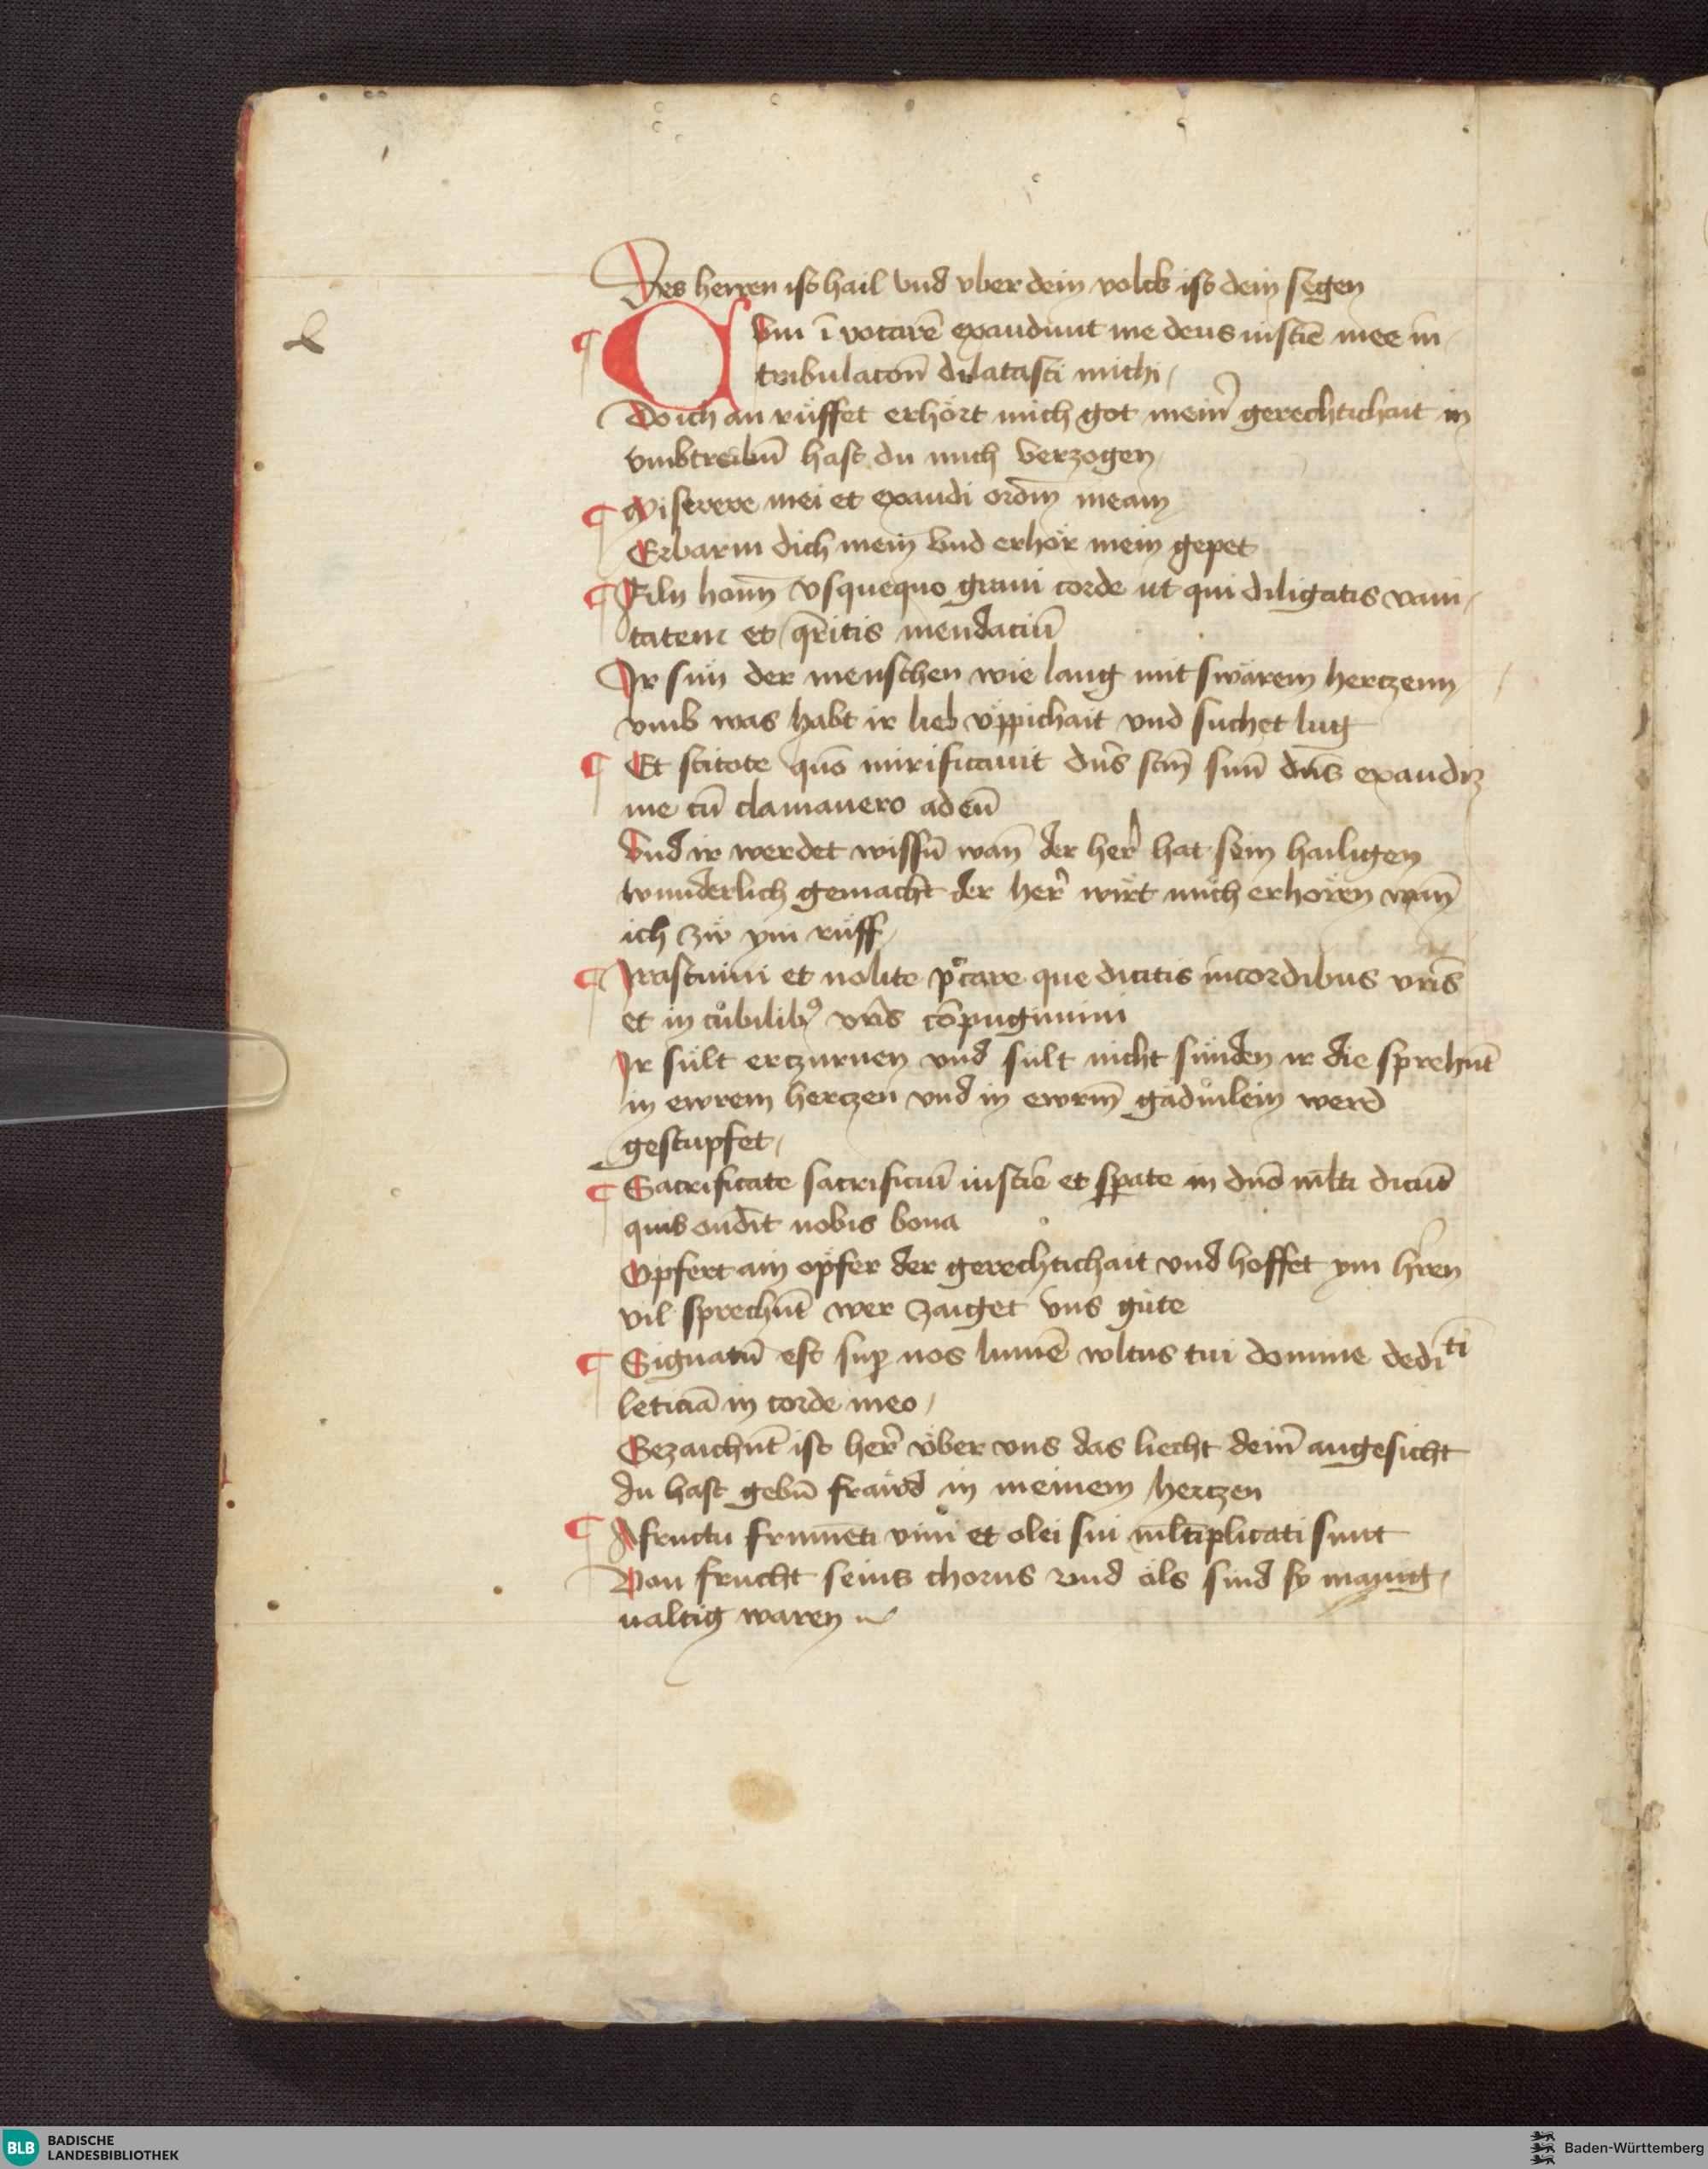 Des herren ist hail vnd vber dein volck ist dein segen
¶ Cum ī vocarē exaudiuit me deus iustīe mee in
tribulacoñ dilatasti michi /
Do ich an rüffet erhört mich got meinˀ gerechtichait in
vmbtreibñ hast du mich verzogen
¶ Miserere mei et exaudi orōm meam
Erbarm dich mein vnd erhör mein gepet
¶ Filii homīn vsquequo graui corde ut qui diligatis vani /
tatem et q̄ritis mendaciū
Ir sün der menschen wie lang mit swärem hertzenn
vmb was habt ir lieb vppichait vnd suchet lug
¶ Et scitote quō mirificauit dn̄s scm̄ suū dn̄s exaudiz
me cū clamauero ad eū
Vnd ir werdet wissñ wañ der herˀ hat sein hailigen
wunderlich gemacht der herˀ wirt mich erhoren wañ
ich zw ym rüff /
¶ Irascimini et nolite pcˀcare que dicitis in cordibus vrīs
et in cubilibꝰ vrīs cōpugimini
Ir sült erczurnen vnd sült nicht sünden ir die sprehnt̄
in ewrem hertzen vnd in ewrm̄ gädmlein werd
gestupfet /
¶ Sacrificate sacrificiū iustīe et sperate in dn̄o ml̄ti dicūt
quis ondīt nobis bona
Opfert ain opfer der gerechtichait vnd hoffet ym hˀren
vil sprechnt̄ wer zaiget vns güte
¶ Signatū est sup nos lumē wltus tui domine dediti
leticiā in corde meo /
Gezaichnt̄ ist herˀ über vns das liecht deinˀ angesicht
du hast gebñ fräwd in meinem hertzen
¶ A fructu frumēti vini et olei sui ml̄tiplicati sunt
Von frucht seins chorns vnd öls sind sy manig /
ualtig waren
BLB BADISCHE
LANDESBIBLIOTHEK
Baden-Württemberg